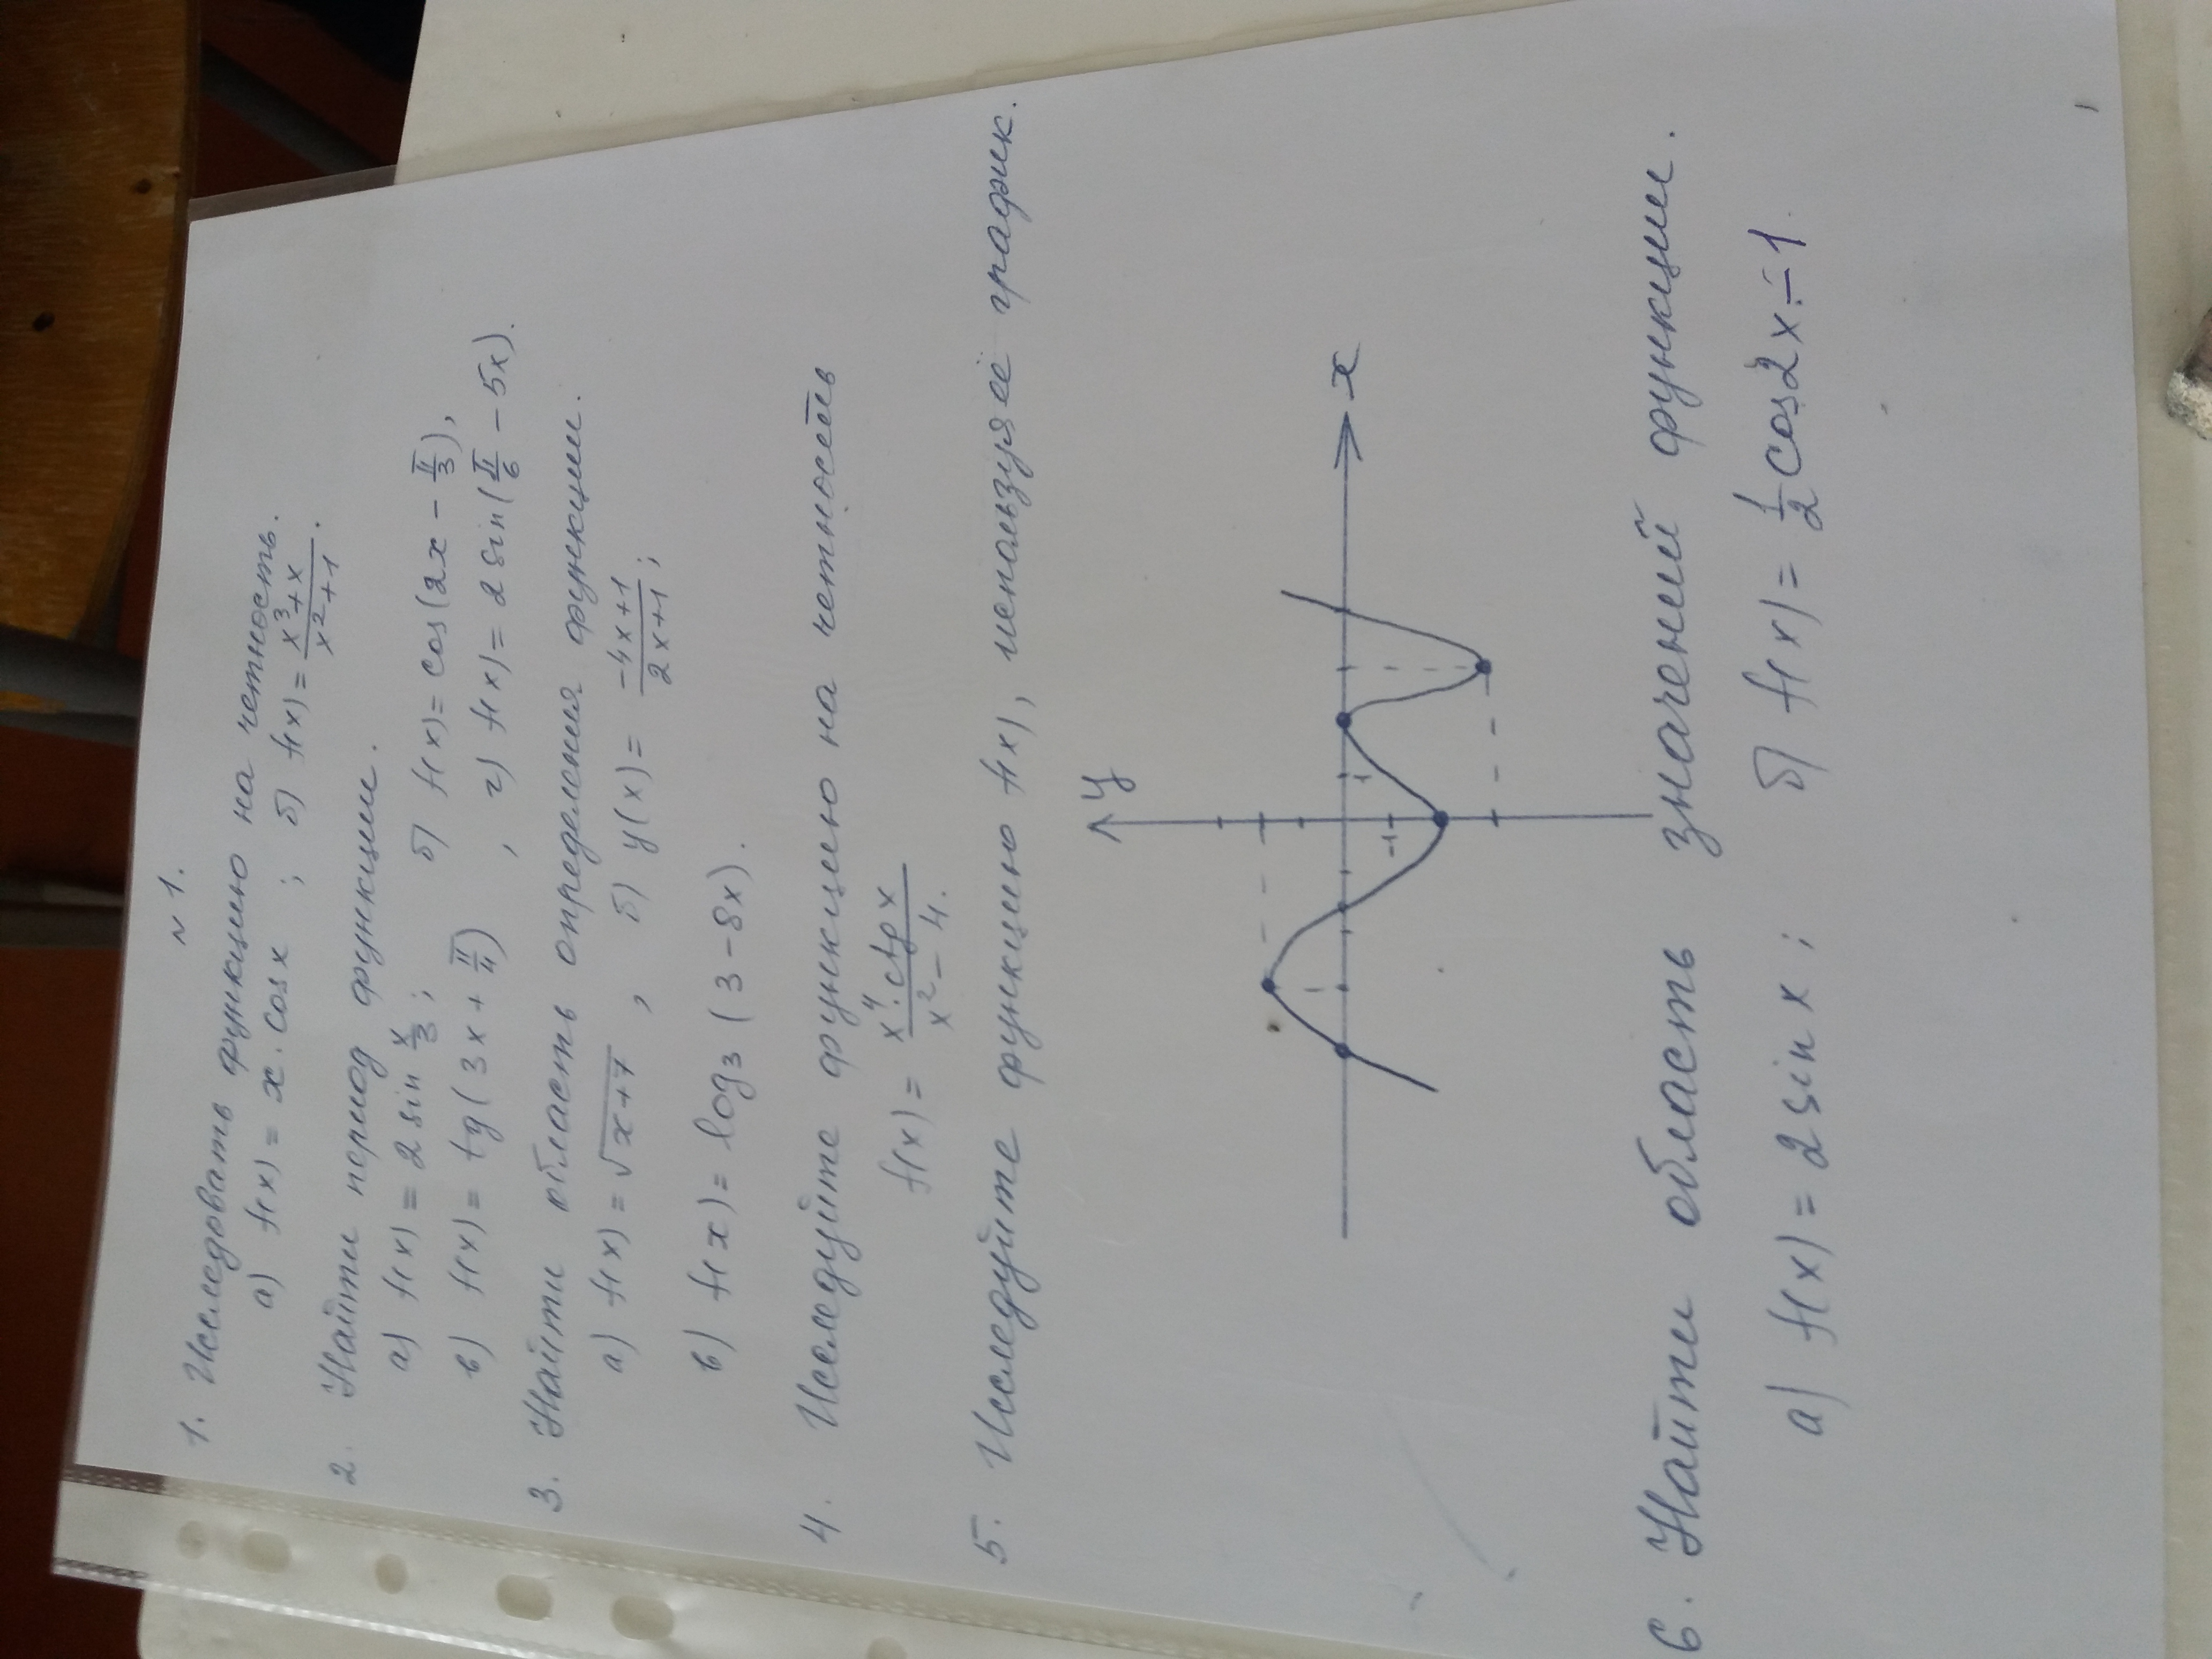 N 1.
1. Исследовать функцию на четность.
а) f(x) = x · cos x ; б) f(x) = \frac{x^3+x}{x^2+1}.
2. Найти период функции.
а) f(x) = 2 sin \frac{x}{3} ; б) f(x) = cos(2x - \frac{π}{3}),
в) f(x) = tg(3x + \frac{π}{4}) , г) f(x) = 2 sin(\frac{π}{6} - 5x).
3. Найти область определения функции.
а) f(x) = √(x+7) , б) y(x) = \frac{-4x+1}{2x+1} ;
в) f(x) = log₃ (3 - 8x).
4. Исследуйте функцию на четность
f(x) = \frac{x^4 · ctg x}{x^2 - 4}.
5. Исследуйте функцию f(x), используя её график.
y
x
1
-1
6. Найти область значений функции.
а) f(x) = 2 sin x ; б) f(x) = \frac{1}{2} cos 2x - 1.